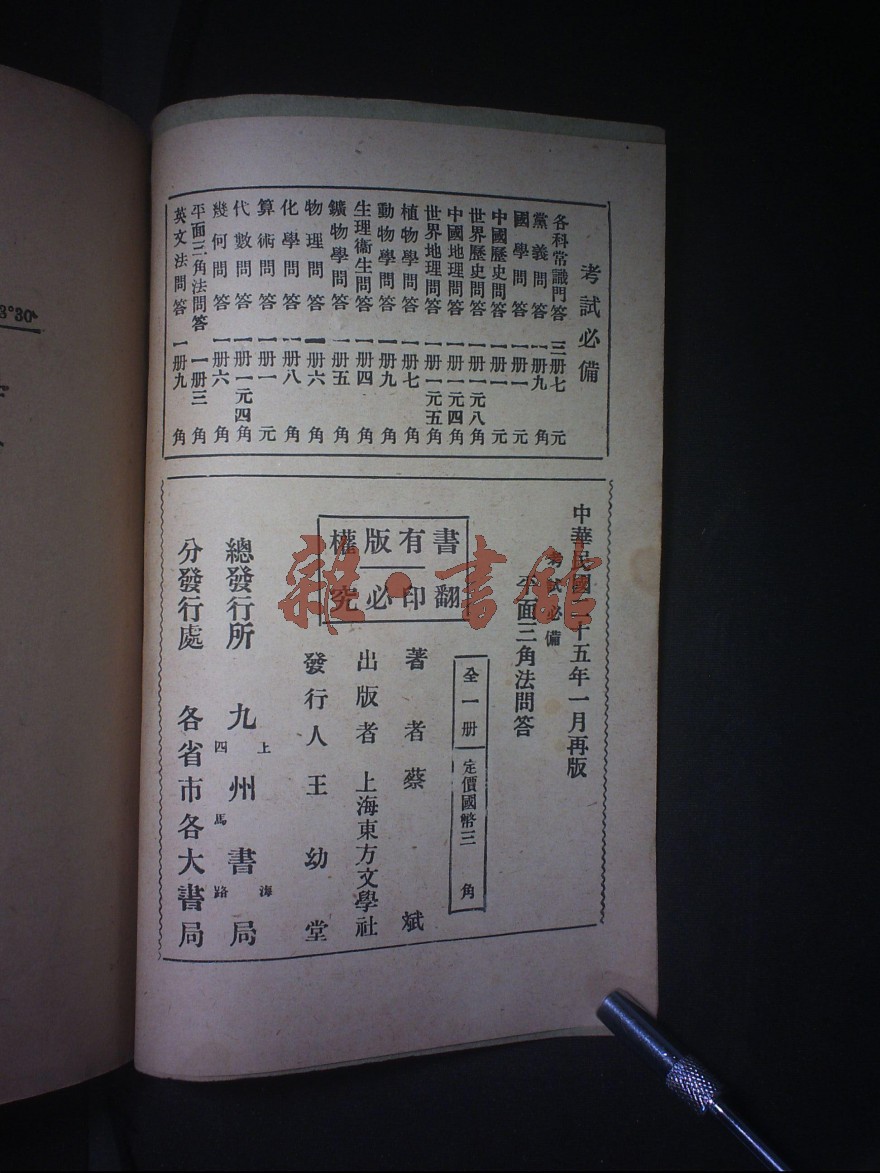 考試必備
各科常識門答 三册七元
黨義問答 一册九角
國學問答 一册一元
中國歷史問答 一册一元
世界歷史問答 一册一元八角
中國地理問答 一册一元四角
世界地理問答 一册一元五角
植物學問答 一册七角
動物學問答 一册九角
生理衞生問答 一册四角
鑛物學問答 一册五角
物理問答 一册六角
化學問答 一册八角
算術問答 一册一元
代數問答 一册一元四角
幾何問答 一册六角
平面三角法問答 一册三角
英文法問答 一册九角
中華民國二十五年一月再版
考試必備
平面三角法問答
全一册 定價國幣三角
書有版權
翻印必究
著者 蔡斌
出版者 上海東方文學社
發行人 王幼堂
總發行所 九州書局
上海
四馬路
分發行處 各省市各大書局
雜·書館
3°30